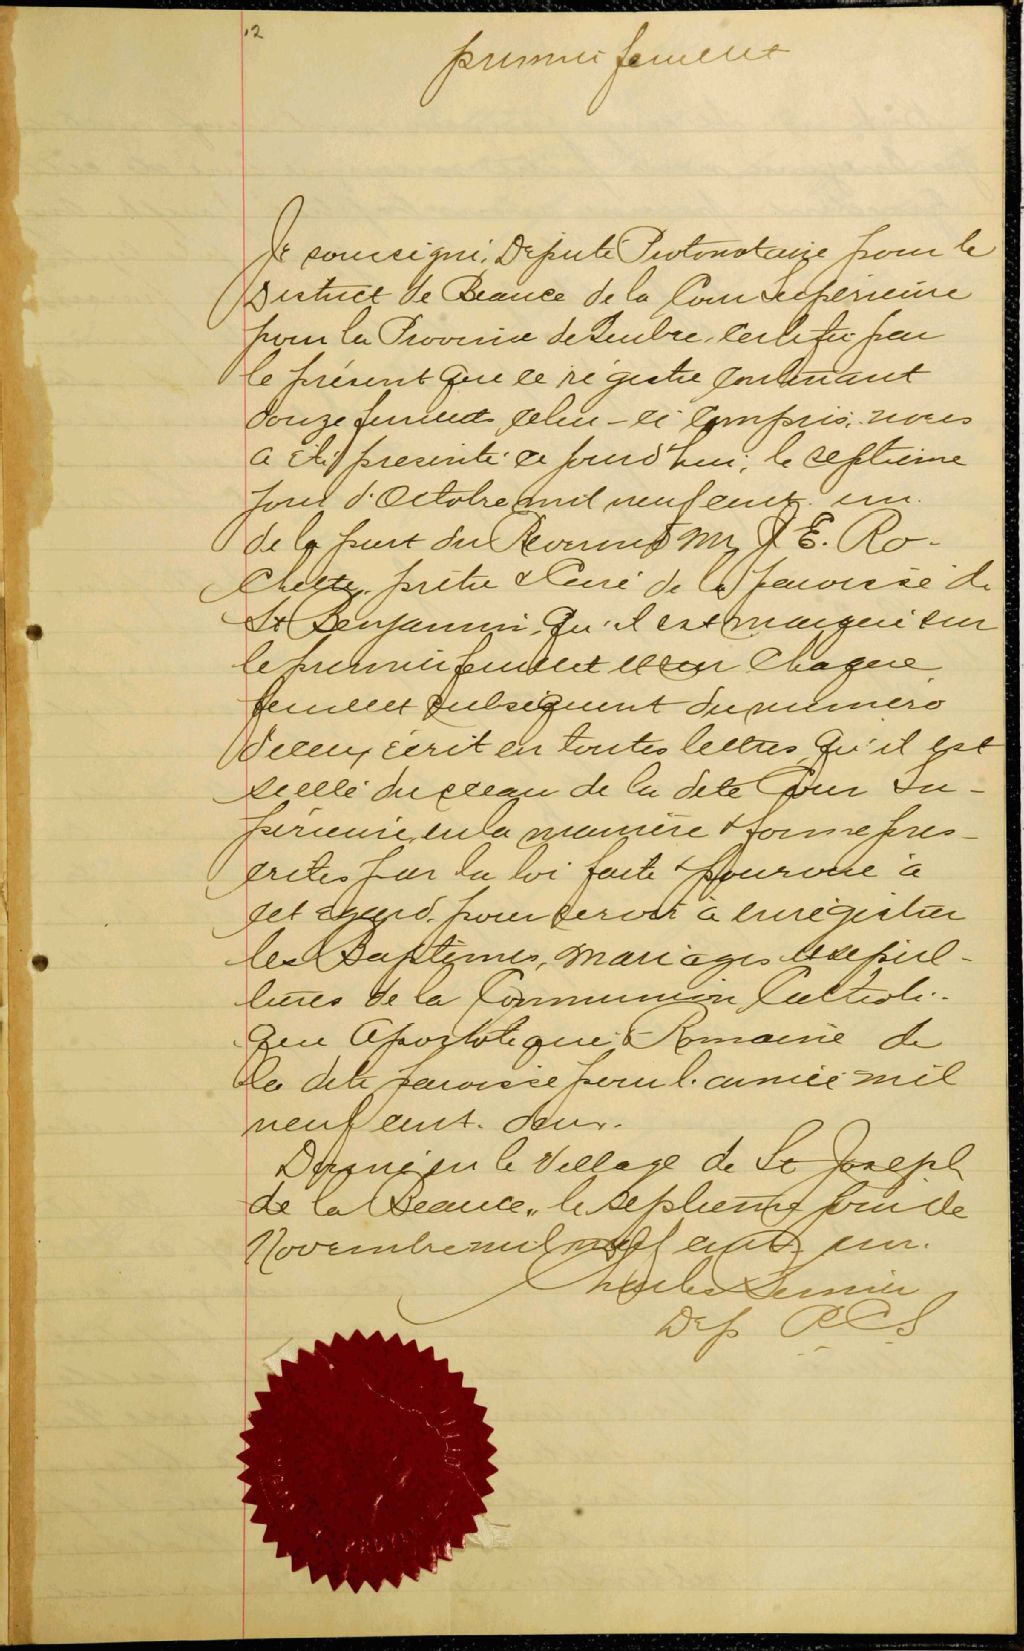 12
premier feuillet
Je soussigné, Député Protonotaire pour le
District de Beauce de la Cour Supérieure
pour la Province de Quebec, certifie par
le présent que ce régistre contenant
douze feuillets celui-ci compris, nous
a été presenté ce jourd'hui, le septième
jour d'Octobre mil neuf cent un
de la part du Reverend M J E. Ro-
chette, prêtre & Curé de la paroisse de
St Benjamin, qu'il est marqué sur
le premier feuillet et sur chaque
feuillet subséquent du numéro
d'iceux, écrit en toutes lettres, qu'il est
scellé du sceau de la dite Cour Su-
périeure, en la manière & forme pres-
crites par la loi faite & pourvue à
cet égard, pour servir à enrégistrer
les Baptêmes, Mariages et sépul-
tures de la Communion Catholi-
que Apostolique & Romaine de
la dite paroisse pour l'année mil
neuf cent deux.
Donné en le Village de St Joseph
de la Beauce, le septième jour de
Novembre mil neuf cent un.
Charles
Dep P C S